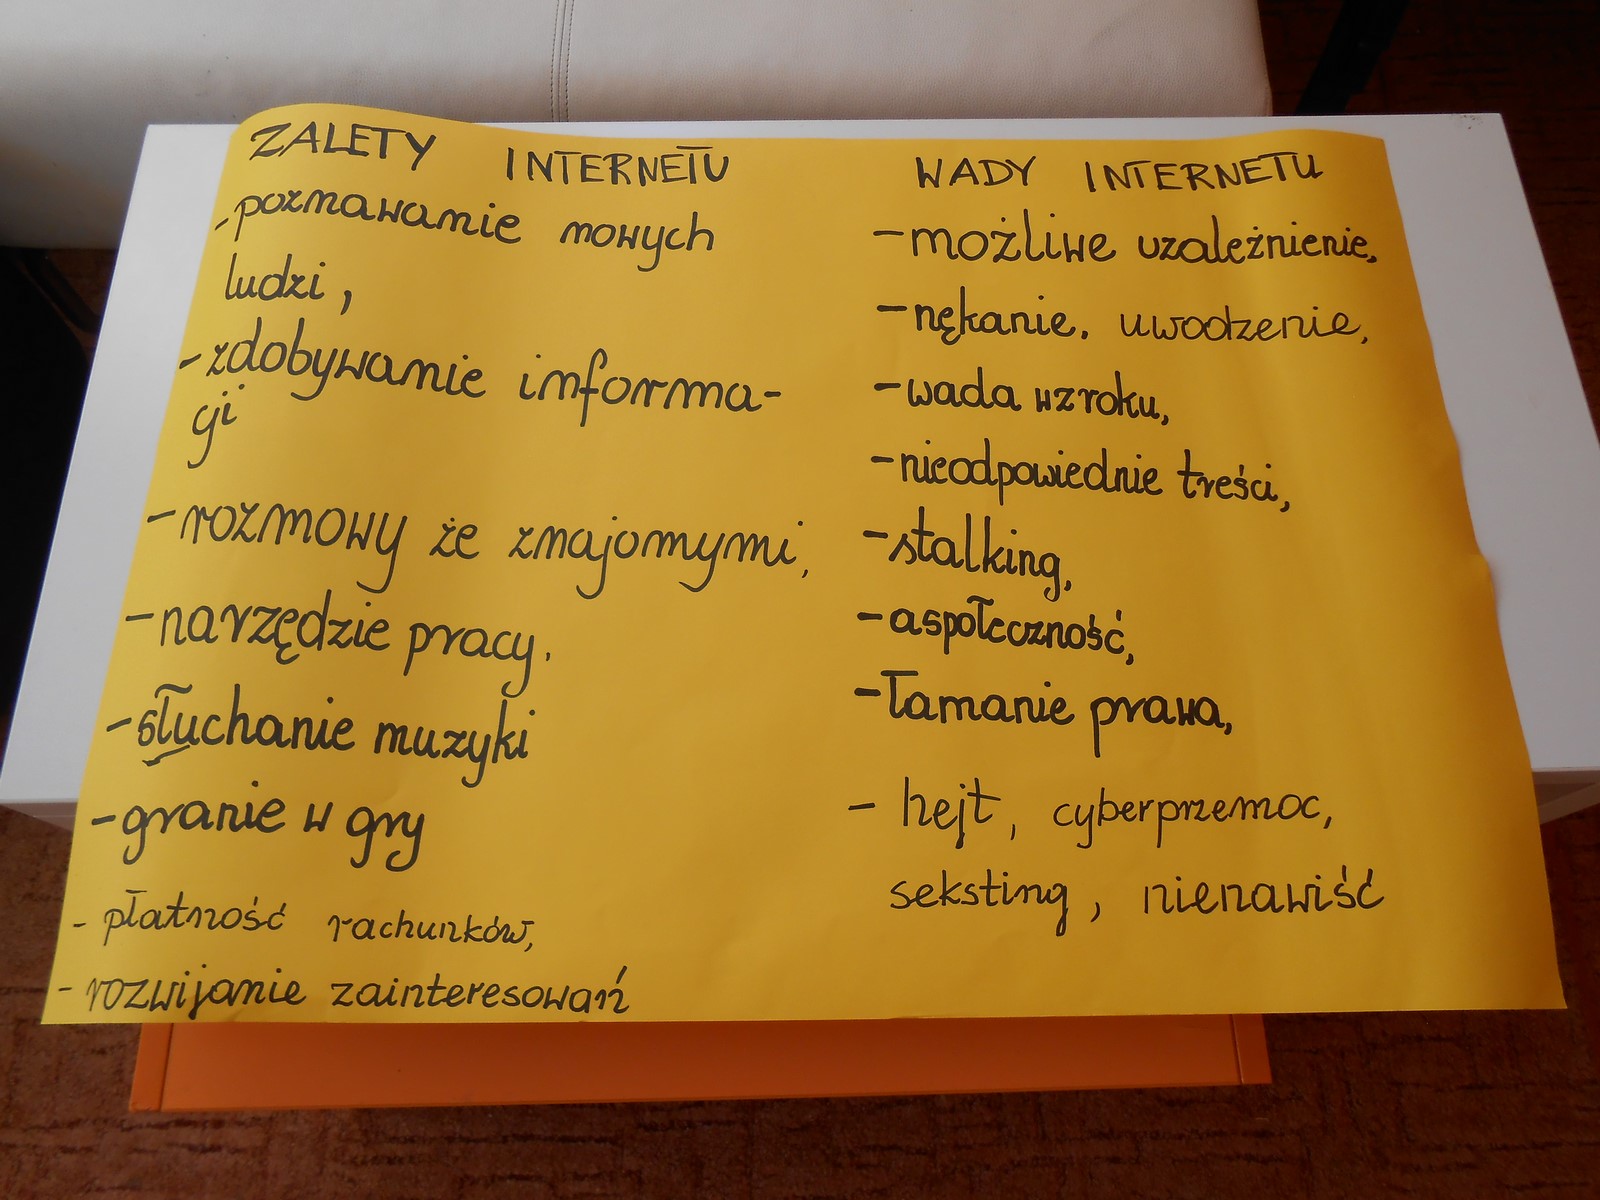 ZALETY INTERNETU
-poznawanie nowych
ludzi,
-zdobywanie informa-
cji
-rozmowy że znajomymi,
-narzędzie pracy.
-słuchanie muzyki
-granie w gry
- płatność rachunków,
- rozwijanie zainteresowań
WADY INTERNETU
-możliwe uzależnienie,
-nękanie. uwodzenie,
-wada wzroku,
-nieodpowiednie treści,
-stalking,
-aspołeczność,
-łamanie prawa,
- hejt, cyberprzemoc,
seksting, nienawiść